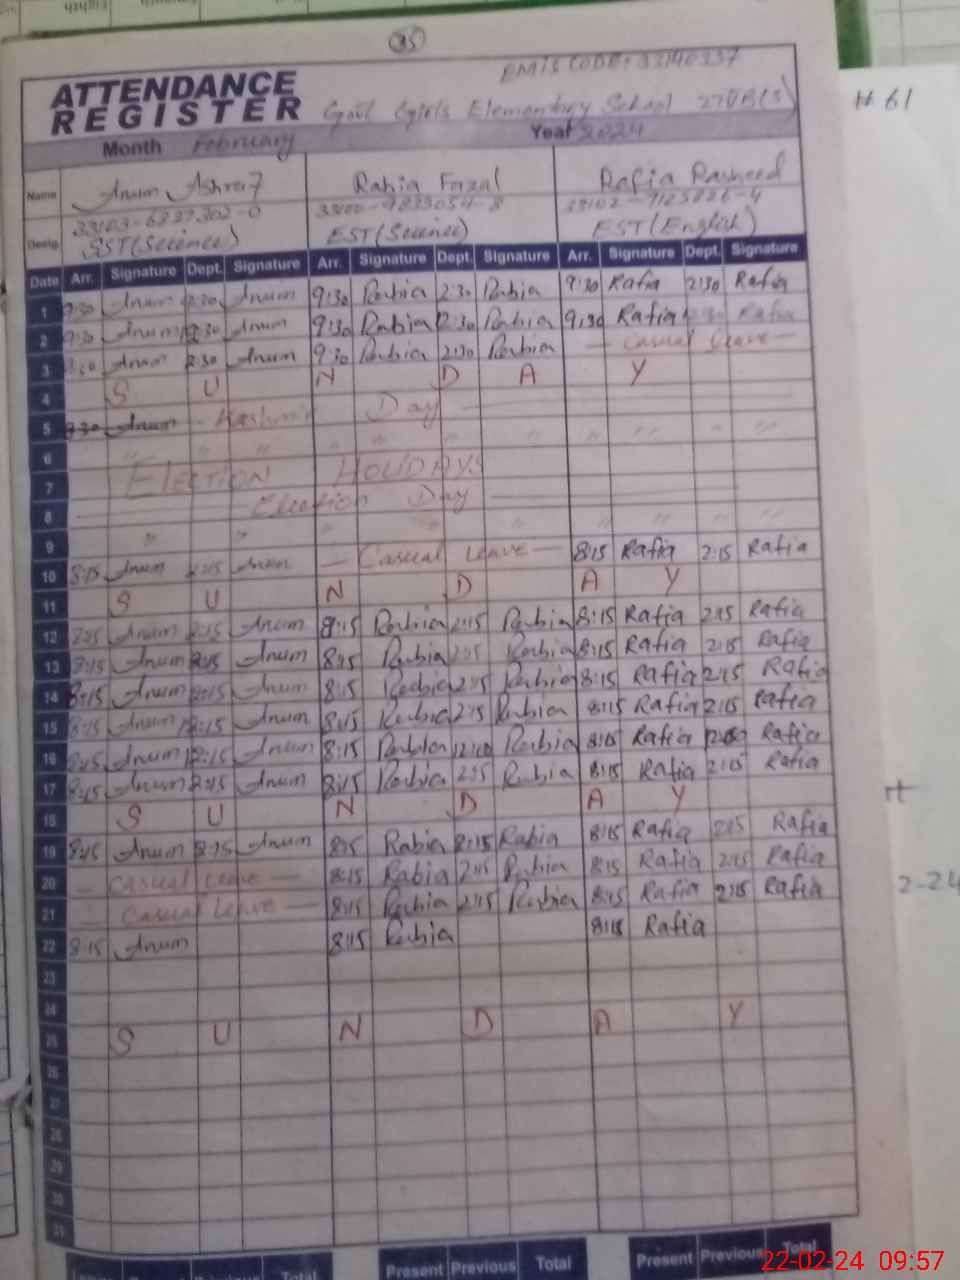 35
EMIS CODE: 33140337
ATTENDANCE
REGISTER
Govt Girls Elementary School
# 61
Month February Year 2024
Name Anum Ashraf Rabia Fazal Rafia Rasheed
Desig. SST(Science) EST(Science) EST(English)
Date Arr. Signature Dept. Signature Arr. Signature Dept. Signature Arr. Signature Dept. Signature
1 9:30 Anum 2:30 Anum 9:30 Rabia 2:30 Rabia 9:30 Rafia 2:30 Rafia
2 9:30 Anum 2:30 Anum 9:30 Rabia 2:30 Rabia 9:30 Rafia 2:30 Rafia
3 9:30 Anum 2:30 Anum 9:30 Rabia 2:30 Rabia — Casual Leave —
4 S U N D A Y
5 Anum - Kashmir Day -
6 " " " " " " "
7 ELECTION HOLIDAYS
8 - Election Day -
9 " " " " " " "
10 8:15 Anum 2:15 Anum — Casual Leave — 8:15 Rafia 2:15 Rafia
11 S U N D A Y
12 8:15 Anum 2:15 Anum 8:15 Rabia 2:15 Rabia 8:15 Rafia 2:15 Rafia
13 8:15 Anum 2:15 Anum 8:15 Rabia 2:15 Rabia 8:15 Rafia 2:15 Rafia
14 8:15 Anum 2:15 Anum 8:15 Rabia 2:15 Rabia 8:15 Rafia 2:15 Rafia
15 8:15 Anum 2:15 Anum 8:15 Rabia 2:15 Rabia 8:15 Rafia 2:15 Rafia
16 8:15 Anum 12:15 Anum 8:15 Rabia Rabia 8:15 Rafia Rafia
17 8:15 Anum 2:15 Anum 8:15 Rabia 2:15 Rabia 8:15 Rafia 2:15 Rafia
18 S U N D A Y
19 8:15 Anum 2:15 Anum 8:15 Rabia 2:15 Rabia 8:15 Rafia 2:15 Rafia
20 — Casual Leave — 8:15 Rabia 2:15 Rabia 8:15 Rafia 2:15 Rafia
21 Casual Leave — 8:15 Rabia 2:15 Rabia 8:15 Rafia 2:15 Rafia
22 8:15 Anum 8:15 Rabia 8:15 Rafia
23
24
25 S U N D A Y
26
27
28
29
30
31
Total Present Previous Total Present Previous Total
2-24
22-02-24 09:57